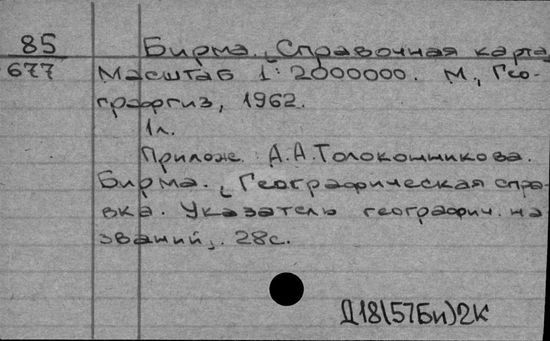 85 Бирма. [Справочная карта]
677 Масштаб 1:2000000. М., Гео-
графгиз, 1962.
1л.
Прилож. А.А.Толоконникова.
Бирма. [Географическая спра-
вка. Указатель географич. на
званий]. 28с.
Д18(57Би)2К